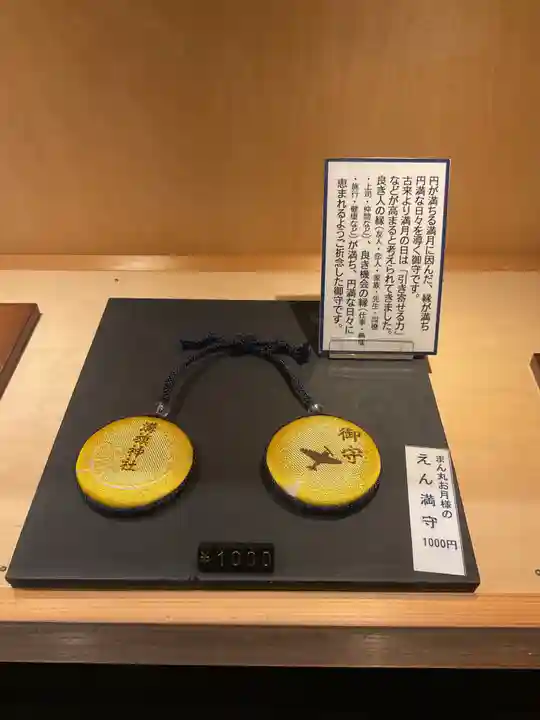 円が満ちる満月に因んだ、縁が満ち
円満な日々を導く御守です。
古来より満月の日は「引き寄せる力」
などが高まると考えられてきました。
良き人の縁(友人・恋人・家族・先生・同僚
・上司・仲間など)、良き機会の縁(仕事・趣味
・旅行・健康など)が満ち、円満な日々に
恵まれるようご祈念した御守です。
神社
御守
まん丸お月様の
えん満守
1000円
¥1000